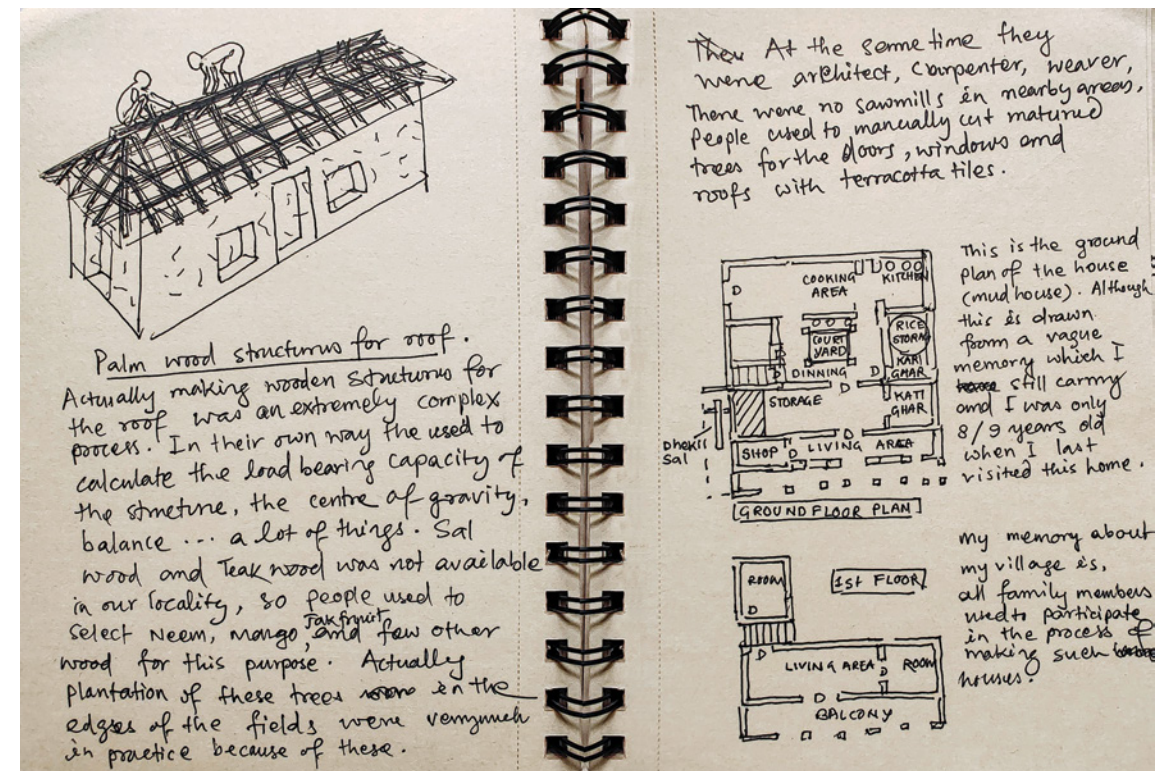 Palm wood structures for roof.
Actually making wooden structures for
the roof was an extremely complex
process. In their own way the used to
calculate the load bearing capacity of
the structure, the centre of gravity,
balance ... a lot of things. Sal
wood and Teak wood was not available
in our locality, so people used to
Jakfruit
select Neem, mango, and few other
wood for this purpose. Actually
plantation of these trees in the
edges of the fields were verymuch
in practice because of these.
At the same time they
were architect, carpenter, weaver,
There were no sawmills in nearby areas,
People used to manually cut matured
trees for the doors, windows and
roofs with terracotta tiles.
COOKING
AREA
KITCHEN
D
RICE
STORAG
COURT
YARD
KARI
GHAR
D
DINNING
D
D
STORAGE
KATI
GHAR
Dhekii
Sal
D
SHOP
D
LIVING AREA
GROUND FLOOR PLAN
This is the ground
plan of the house
(mud house). Although
this is drawn
from a vague
memory which I
still carry
and I was only
8/9 years old
when I last
visited this home.
ROOM
D
1ST FLOOR
D
LIVING AREA
D
D
ROOM
D
BALCONY
my memory about
my village is,
all family members
used to participate
in the process of
making such
houses.